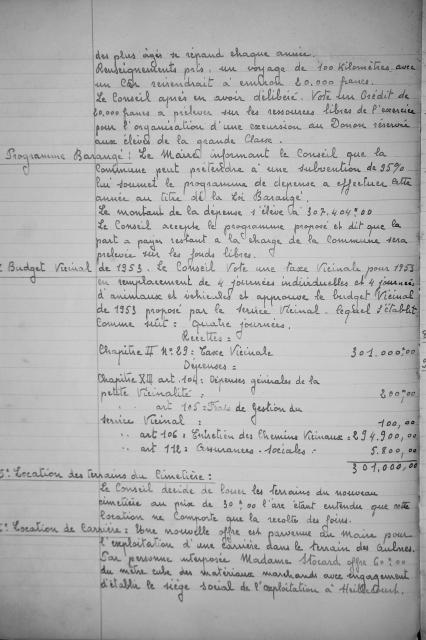 des plus âgés se répand chaque année.
Renseignements pris, un voyage de 100 Kilomètres avec
un Car reviendrait à environ 20.000 francs.
Le Conseil après en avoir délibéré. Vote un Crédit de
20,000 francs à prélever sur les ressources libres de l'exercice
pour l'organisation d'une excursion au Donon réservée
aux élèves de la grande Classe.
Programme Barangé : Le Maire informant le Conseil que la
Commune peut prétendre à une subvention de 95%
lui soumet le programme de dépense à effectuer cette
année au titre de la Loi Barangé.
Le montant de la dépense s'élève à 307.404,00
Le Conseil accepte le programme proposé et dit que la
part à payer restant à la charge de la Commune sera
prélevée sur les fonds libres.
Budget Vicinal de 1953. Le Conseil Vote une taxe Vicinale pour 1953
en remplacement de 4 journées individuelles et 4 journées
d'animaux et véhicules et approuve le budget Vicinal
de 1953 proposé par le service Vicinal. lequel s'établit
comme suit : quatre journées.
Recettes =
Chapitre II N° 29 : Taxe Vicinale 301.000,00
Dépenses =
Chapitre XIII art. 104 : Dépenses générales de la
petite Vicinalité : 200,00
" art 105 = Frais de Gestion du
service Vicinal : 100,00
" art 106 : Entretien des Chemins Vicinaux = 294.900,00
" art 112 = Assurances sociales : 5.800,00
301.000,00
5° Location des terrains du Cimetière :
Le Conseil décide de louer les terrains du nouveau
cimetière au prix de 30,00 l'are étant entendu que cette
location ne comporte que la récolte des foins.
Location de Carrière : Une nouvelle offre est parvenue au Maire pour
l'exploitation d'une carrière dans le terrain des Aulnes.
Par personne interposée Madame Stocard offre 60,00
du mètre cube des matériaux marchands avec engagement
d'établir le siège social de l'exploitation à